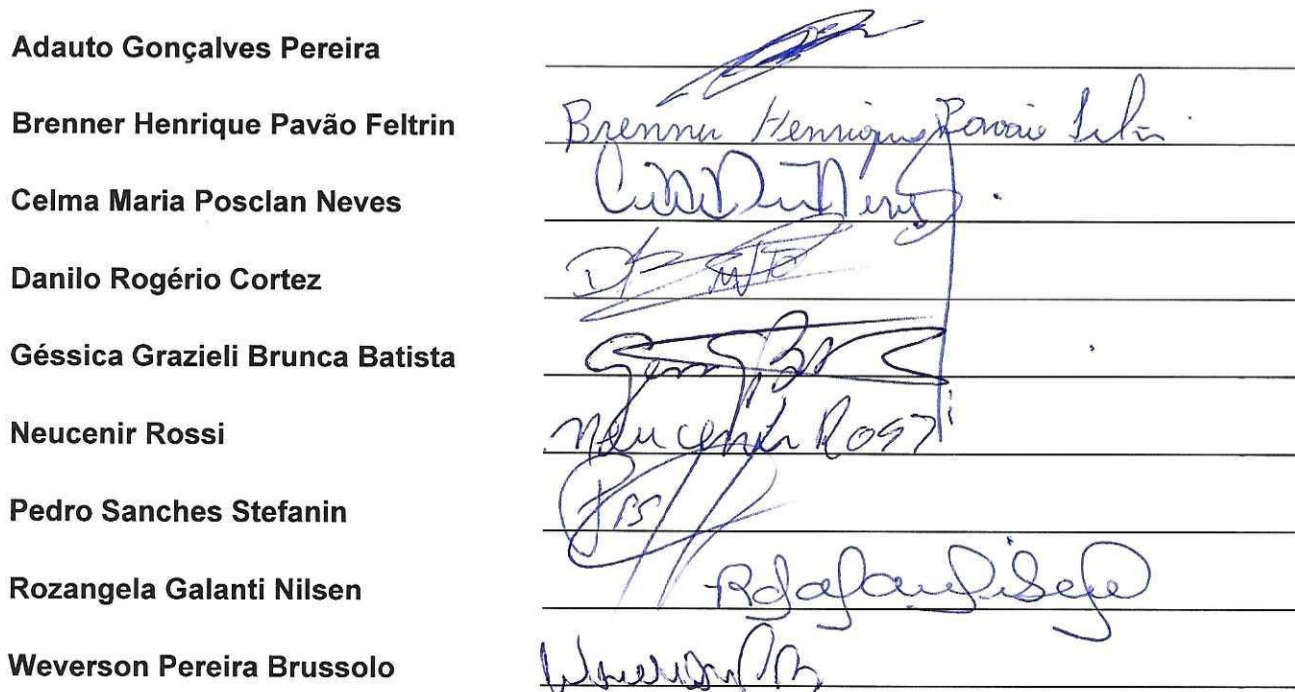 Adauto Gonçalves Pereira
Brenner Henrique Pavão Feltrin Brenner Henrique Pavão
Celma Maria Posclan Neves
Danilo Rogério Cortez
Géssica Grazieli Brunca Batista
Neucenir Rossi Neucenir Rossi
Pedro Sanches Stefanin
Rozangela Galanti Nilsen
Weverson Pereira Brussolo